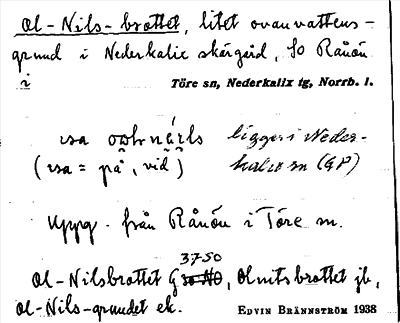 Ol-Nils-brottet, litet ovanvattens-
grund i Nederkalix skärgård, SO Rånön
i Töre sn, Nederkalix tg, Norrb. l.
ligger i Neder-
(usa = på, vid) kalix sn (GP)
Uppg. från Rånön i Töre sn.
3750
Ol-Nilsbrottet G 30 NO, Olnilsbrottet jb,
Ol-Nils-grundet ek. EDVIN BRÄNNSTRÖM 1938